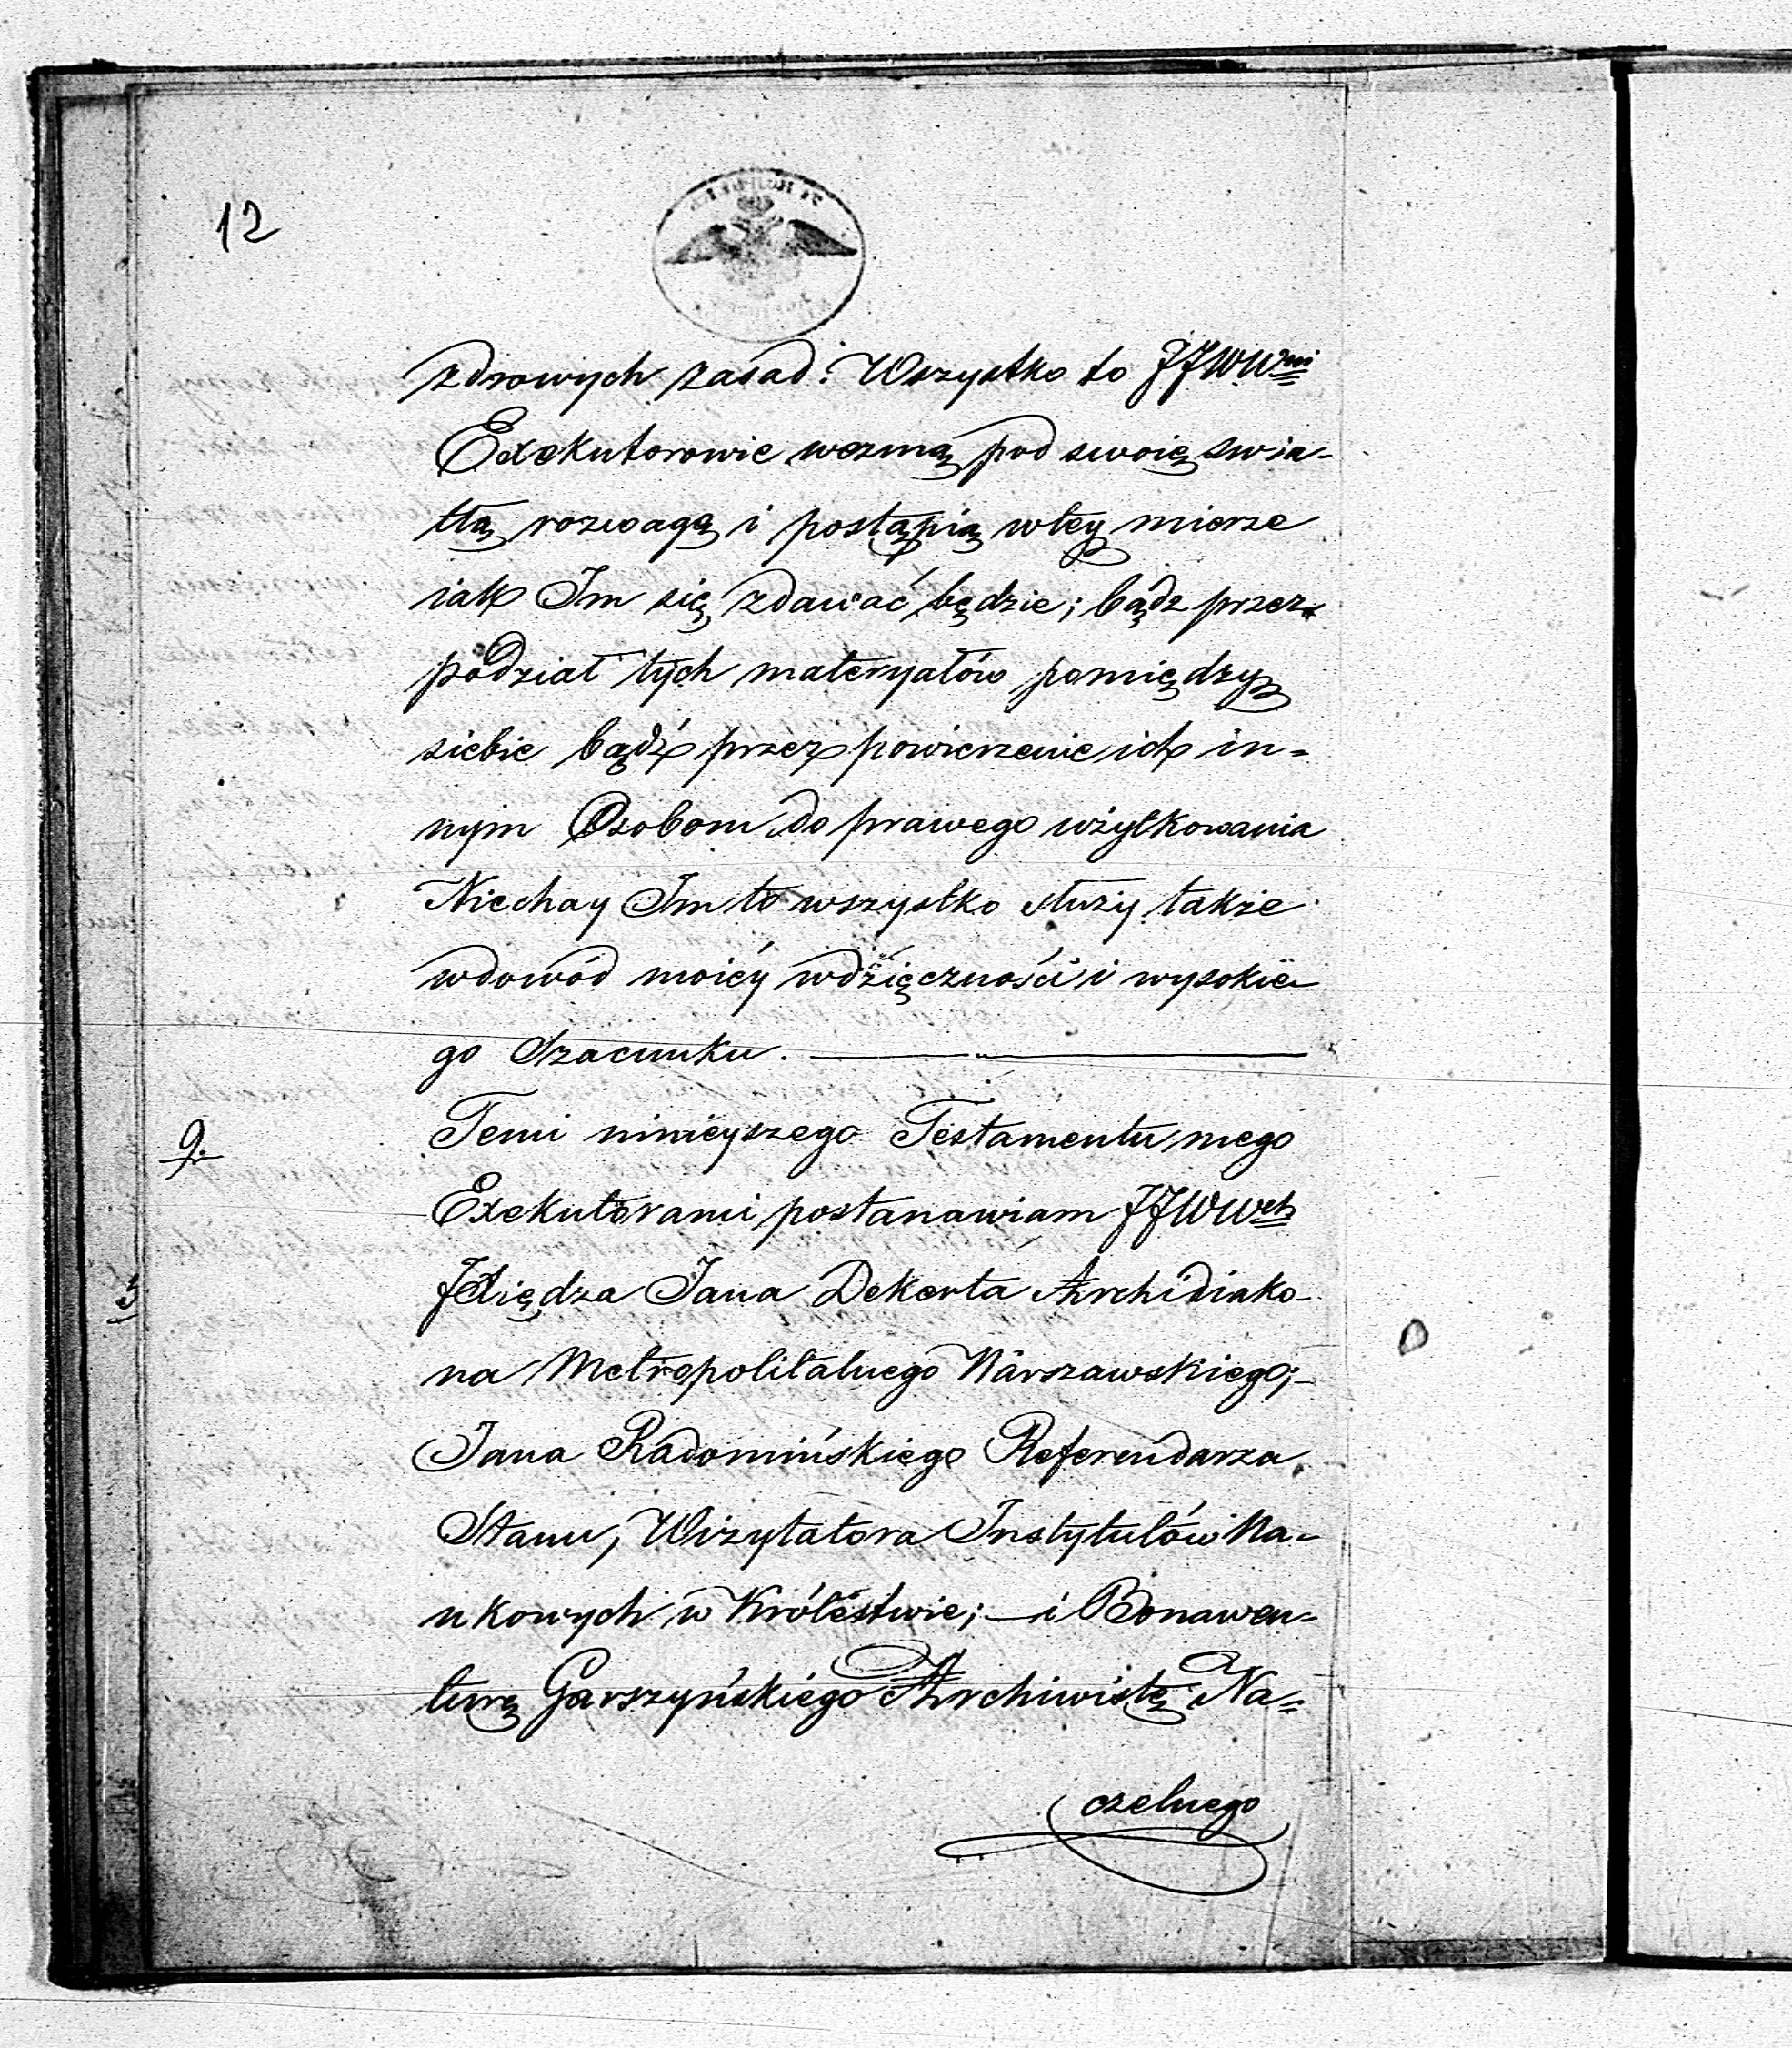 12
zdrowych zasad. Wszystko to JJWW<sup>ni</sup>
Exekutorowie wezmą pod swoię swia-
tłą rozwagę i postąpią wtey mierze
iak Im się zdawać będzie; bądz przez
podział tych materyałów pomiędzy
siebie bądź przez powierzenie ich in-
nym Osobom do prawego użytkowania
Niechay Im to wszystko służy także
wdowód moiéy wdzięczności i wysokie
go Szacunku.
9. Temi ninieyszego Testamentu mego
Exekutorami postanawiam JJWW<sup>ch</sup>
Xiędza Jana Dekerta Archidiako-
na Metropolitalnego Warszawskiego;
Jana Radomińskiego Referendarza
Stanu, Wizytatora Instytutów Na-
ukowych w Królestwie; — i Bonawen-
turę Garszyńskiego Archiwistę Na-
czelnego